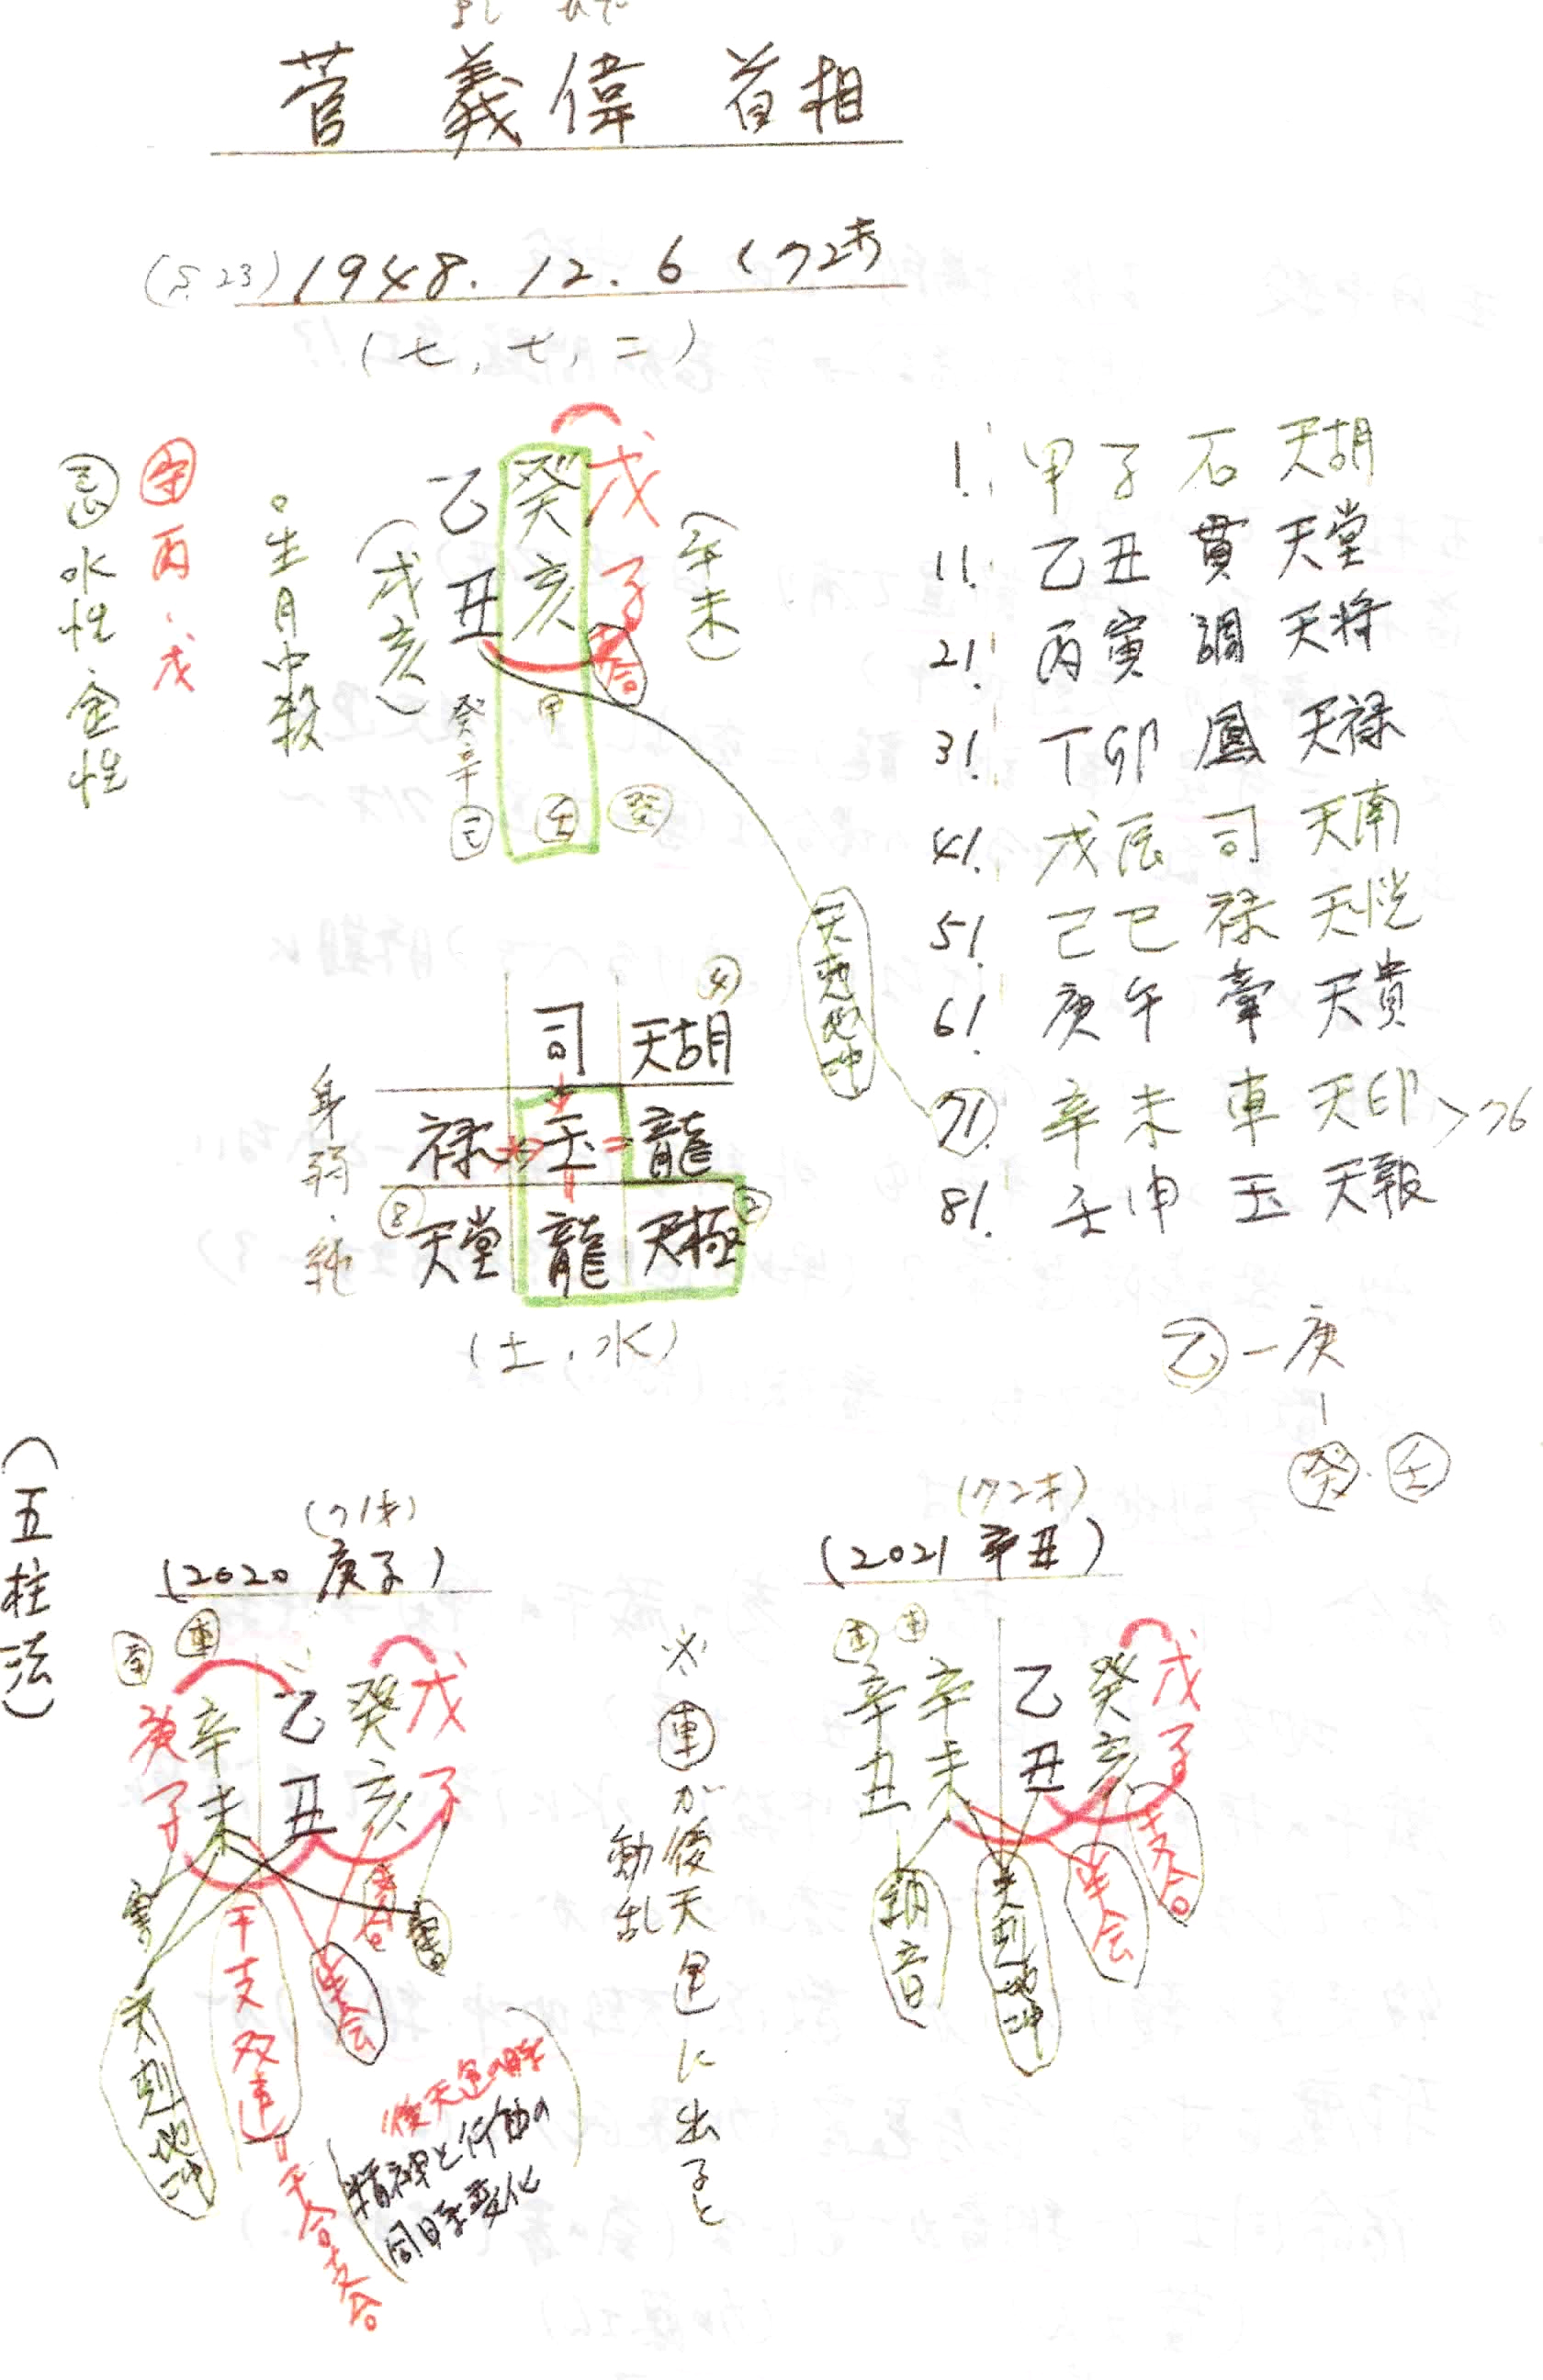 菅 義偉 首相
(S.23) 1948. 12. 6 (72才)
(七, 七, 二)
忌 水性 金性
守 丙、戊
○生月中殺
乙 癸 戊
丑 亥 子
(戌亥)
(辛未)
支合
癸 甲
辛
己 壬 癸
天剋地冲
1! 甲子 石 天胡
11! 乙丑 貫 天堂
21! 丙寅 調 天将
31! 丁卯 鳳 天禄
41! 戊辰 司 天南
51! 己巳 禄 天恍
61! 庚午 牽 天貴
71! 辛未 車 天印 >76
81! 壬申 玉 天報
身弱・純
司 天胡 ④
禄 玉 龍
⑧ 天堂 龍 天極 ②
(土, 水)
乙 - 庚
癸・壬
(五柱法)
(71才)
(2020 庚子)
牽 車
庚 辛 乙 癸 戊
子 未 丑 亥 子
害
天剋地冲
干支双連
=干合支合
半会
支合
害
後天運の時
精神と行動の
同時変化
※車が後天運に出ると
動乱
(72才)
(2021 辛丑)
車 車
辛 辛 乙 癸 戊
丑 未 丑 亥 子
納音
天剋地冲
半会
支合